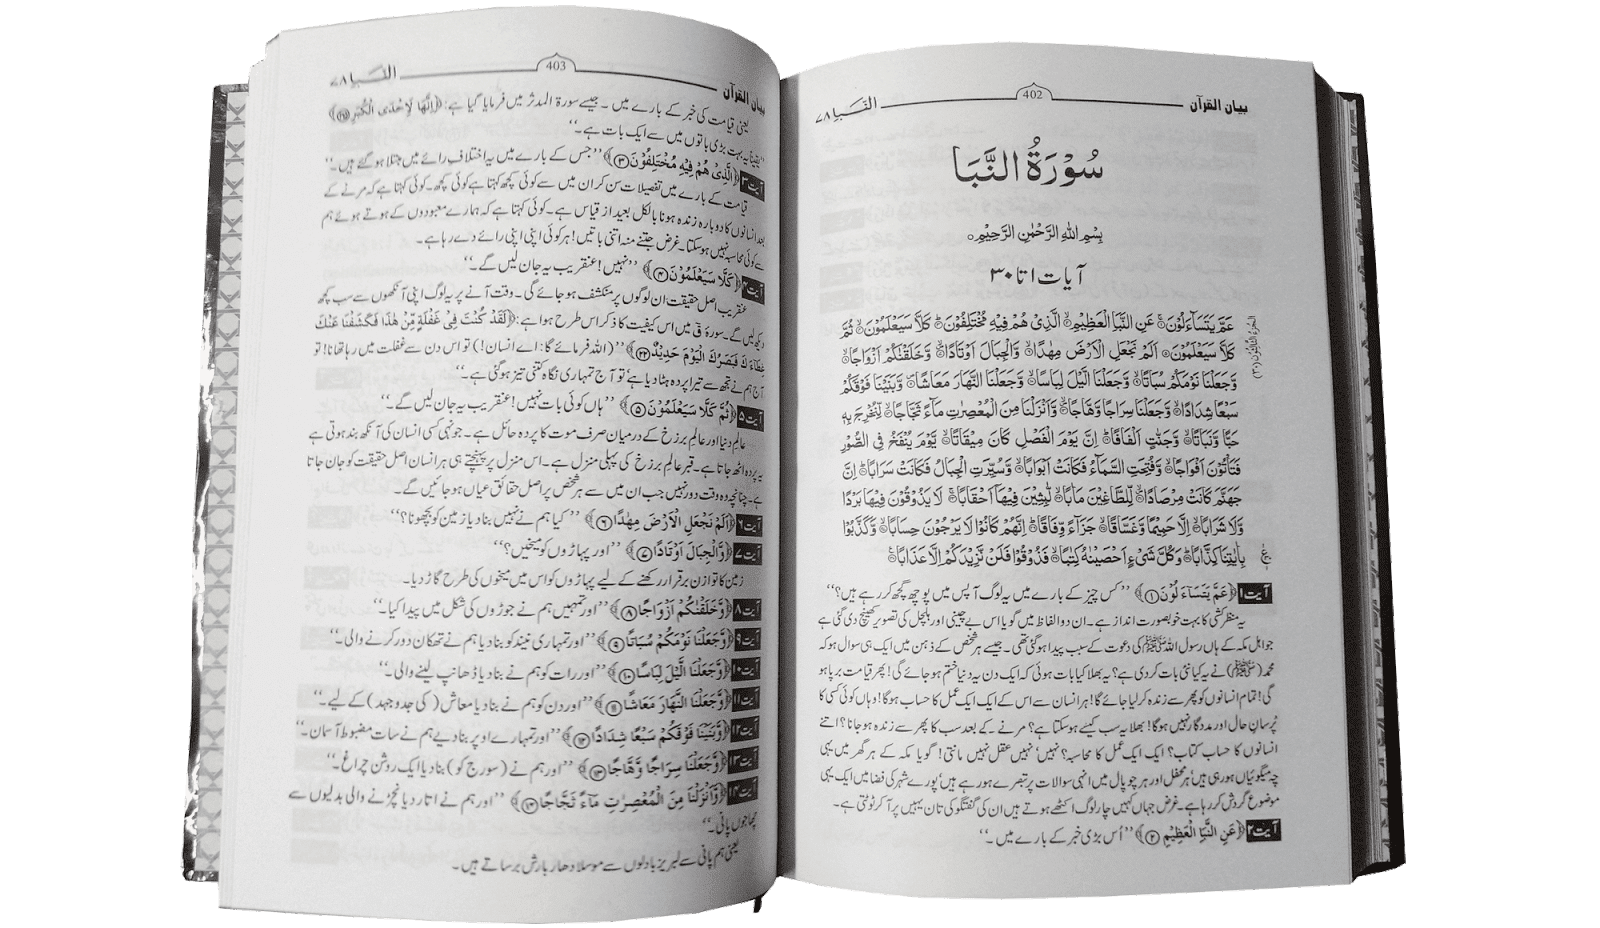 بیان القرآن 402 النَّبَا ۷۸
سُوْرَةُ النَّبَا
بِسْمِ اللهِ الرَّحْمٰنِ الرَّحِيْمِ
آیات ۱ تا ۳۰
عَمَّ يَتَسَآءَلُوْنَ۝ عَنِ النَّبَاِ الْعَظِيْمِ۝ الَّذِىْ هُمْ فِيْهِ مُخْتَلِفُوْنَ۝ كَلَّا سَيَعْلَمُوْنَ۝ ثُمَّ
كَلَّا سَيَعْلَمُوْنَ۝ اَلَمْ نَجْعَلِ الْاَرْضَ مِهٰدًا۝ وَّالْجِبَالَ اَوْتَادًا۝ وَّخَلَقْنٰكُمْ اَزْوَاجًا۝
وَّجَعَلْنَا نَوْمَكُمْ سُبَاتًا۝ وَّجَعَلْنَا الَّيْلَ لِبَاسًا۝ وَّجَعَلْنَا النَّهَارَ مَعَاشًا۝ وَّبَنَيْنَا فَوْقَكُمْ
سَبْعًا شِدَادًا۝ وَّجَعَلْنَا سِرَاجًا وَّهَّاجًا۝ وَّاَنْزَلْنَا مِنَ الْمُعْصِرٰتِ مَآءً ثَجَّاجًا۝ لِّنُخْرِجَ بِهٖ
حَبًّا وَّنَبَاتًا۝ وَّجَنّٰتٍ اَلْفَافًا۝ اِنَّ يَوْمَ الْفَصْلِ كَانَ مِيْقَاتًا۝ يَّوْمَ يُنْفَخُ فِى الصُّوْرِ
فَتَاْتُوْنَ اَفْوَاجًا۝ وَّفُتِحَتِ السَّمَآءُ فَكَانَتْ اَبْوَابًا۝ وَّسُيِّرَتِ الْجِبَالُ فَكَانَتْ سَرَابًا۝ اِنَّ
جَهَنَّمَ كَانَتْ مِرْصَادًا۝ لِّلطَّاغِيْنَ مَاٰبًا۝ لّٰبِثِيْنَ فِيْهَآ اَحْقَابًا۝ لَا يَذُوْقُوْنَ فِيْهَا بَرْدًا
وَّلَا شَرَابًا۝ اِلَّا حَمِيْمًا وَّغَسَّاقًا۝ جَزَآءً وِّفَاقًا۝ اِنَّهُمْ كَانُوْا لَا يَرْجُوْنَ حِسَابًا۝ وَّكَذَّبُوْا
بِاٰيٰتِنَا كِذَّابًا۝ وَكُلَّ شَىْءٍ اَحْصَيْنٰهُ كِتٰبًا۝ فَذُوْقُوْا فَلَنْ نَّزِيْدَكُمْ اِلَّا عَذَابًا۝
آیت ۱ ﴿عَمَّ يَتَسَآءَلُوْنَ۝۱﴾ ’’کس چیز کے بارے میں یہ لوگ آپس میں پوچھ گچھ کر رہے ہیں؟‘‘
یہ منظر کشی کا بہت خوبصورت انداز ہے۔ ان دو الفاظ میں گویا اس بے چینی اور ہلچل کی تصویر کھینچ دی گئی ہے
جو اہل مکہ کے ہاں رسول اللہ ﷺ کی دعوت کے سبب پیدا ہو گئی تھی۔ جیسے ہر شخص کے ذہن میں ایک ہی سوال ہو کہ
محمد (ﷺ) نے یہ کیا نئی بات کر دی ہے؟ یہ بھلا کیا بات ہوئی کہ ایک دن یہ دنیا ختم ہو جائے گی! پھر قیامت برپا ہو
گی! تمام انسانوں کو پھر سے زندہ کر لیا جائے گا! ہر انسان سے اس کے ایک ایک عمل کا حساب ہو گا! وہاں کوئی کسی کا
پُرسانِ حال اور مددگار نہیں ہو گا! بھلا یہ سب کیسے ہو سکتا ہے؟ مرنے کے بعد سب کا پھر سے زندہ ہو جانا؟ اتنے
انسانوں کا حساب کتاب؟ ایک ایک عمل کا محاسبہ؟ نہیں، نہیں عقل نہیں مانتی! گویا مکہ کے ہر گھر میں یہی
چہ میگوئیاں ہو رہی ہیں، ہر محفل اور ہر چوپال میں انہی سوالات پر تبصرے ہو رہے ہیں، پورے شہر کی فضا میں ایک یہی
موضوع گردش کر رہا ہے۔ غرض جہاں کہیں چار لوگ اکٹھے ہوتے ہیں ان کی گفتگو کی تان یہیں پر آ کر ٹوٹتی ہے۔
آیت ۲ ﴿عَنِ النَّبَاِ الْعَظِيْمِ۝۲﴾ ’’اُس بڑی خبر کے بارے میں۔‘‘
بیان القرآن 403 النَّبَا ۷۸
یعنی قیامت کی خبر کے بارے میں۔ جیسے سورۃ المدثر میں فرمایا گیا ہے: ﴿اِنَّهَا لَاِحْدَى الْكُبَرِ۝۳۵﴾
’’یقیناً یہ بہت بڑی باتوں میں سے ایک بات ہے۔‘‘
آیت ۳ ﴿الَّذِىْ هُمْ فِيْهِ مُخْتَلِفُوْنَ۝۳﴾ ’’جس کے بارے میں یہ اختلافِ رائے میں مبتلا ہو گئے ہیں۔‘‘
قیامت کے بارے میں تفصیلات سن کر ان میں سے کوئی کچھ کہتا ہے کوئی کچھ۔ کوئی کہتا ہے کہ مرنے کے
بعد انسانوں کا دوبارہ زندہ ہونا بالکل بعید از قیاس ہے۔ کوئی کہتا ہے کہ ہمارے معبودوں کے ہوتے ہوئے ہم
سے کوئی محاسبہ نہیں ہو سکتا۔ غرض جتنے منہ اتنی باتیں! ہر کوئی اپنی اپنی رائے دے رہا ہے۔
آیت ۴ ﴿كَلَّا سَيَعْلَمُوْنَ۝۴﴾ ’’نہیں! عنقریب یہ جان لیں گے۔‘‘
عنقریب اصل حقیقت ان لوگوں پر منکشف ہو جائے گی۔ وقت آنے پر یہ لوگ اپنی آنکھوں سے سب کچھ
دیکھ لیں گے۔ سورۂ قٓ میں اس کیفیت کا ذکر اس طرح ہوا ہے: ﴿لَقَدْ كُنْتَ فِىْ غَفْلَةٍ مِّنْ هٰذَا فَكَشَفْنَا عَنْكَ
غِطَآءَكَ فَبَصَرُكَ الْيَوْمَ حَدِيْدٌ۝۲۲﴾ ’’(اللہ فرمائے گا: اے انسان!) تو اس دن سے غفلت میں رہا تھا نا! تو
آج ہم نے تجھ سے تیرا پردہ ہٹا دیا ہے، تو آج تمہاری نگاہ کتنی تیز ہو گئی ہے۔‘‘
آیت ۵ ﴿ثُمَّ كَلَّا سَيَعْلَمُوْنَ۝۵﴾ ’’ہاں کوئی بات نہیں! عنقریب یہ جان لیں گے۔‘‘
عالمِ دنیا اور عالمِ برزخ کے درمیان صرف موت کا پردہ حائل ہے۔ جونہی کسی انسان کی آنکھ بند ہوتی ہے
یہ پردہ اٹھ جاتا ہے۔ قبر عالمِ برزخ کی پہلی منزل ہے۔ اس منزل پر پہنچتے ہی ہر انسان اصل حقیقت کو جان جاتا
ہے۔ چنانچہ وہ وقت دور نہیں جب ان میں سے ہر شخص پر اصل حقائق عیاں ہو جائیں گے۔
آیت ۶ ﴿اَلَمْ نَجْعَلِ الْاَرْضَ مِهٰدًا۝۶﴾ ’’کیا ہم نے نہیں بنا دیا زمین کو بچھونا؟‘‘
آیت ۷ ﴿وَّالْجِبَالَ اَوْتَادًا۝۷﴾ ’’اور پہاڑوں کو میخیں؟‘‘
زمین کا توازن برقرار رکھنے کے لیے پہاڑوں کو اس میں میخوں کی طرح گاڑ دیا۔
آیت ۸ ﴿وَّخَلَقْنٰكُمْ اَزْوَاجًا۝۸﴾ ’’اور تمہیں ہم نے جوڑوں کی شکل میں پیدا کیا۔‘‘
آیت ۹ ﴿وَّجَعَلْنَا نَوْمَكُمْ سُبَاتًا۝۹﴾ ’’اور تمہاری نیند کو بنا دیا ہم نے تھکان دور کرنے والی۔‘‘
آیت ۱۰ ﴿وَّجَعَلْنَا الَّيْلَ لِبَاسًا۝۱۰﴾ ’’اور رات کو ہم نے بنا دیا ڈھانپ لینے والی۔‘‘
آیت ۱۱ ﴿وَّجَعَلْنَا النَّهَارَ مَعَاشًا۝۱۱﴾ ’’اور دن کو ہم نے بنا دیا معاش (کی جدوجہد) کے لیے۔‘‘
آیت ۱۲ ﴿وَّبَنَيْنَا فَوْقَكُمْ سَبْعًا شِدَادًا۝۱۲﴾ ’’اور تمہارے اوپر بنا دیے ہم نے سات مضبوط آسمان۔‘‘
آیت ۱۳ ﴿وَّجَعَلْنَا سِرَاجًا وَّهَّاجًا۝۱۳﴾ ’’اور ہم نے (سورج کو) بنا دیا ایک روشن چراغ۔‘‘
آیت ۱۴ ﴿وَّاَنْزَلْنَا مِنَ الْمُعْصِرٰتِ مَآءً ثَجَّاجًا۝۱۴﴾ ’’اور ہم نے اتار دیا نچڑنے والی بدلیوں سے
چھاجوں پانی۔‘‘
یعنی ہم پانی سے لبریز بادلوں سے موسلا دھار بارش برساتے ہیں۔